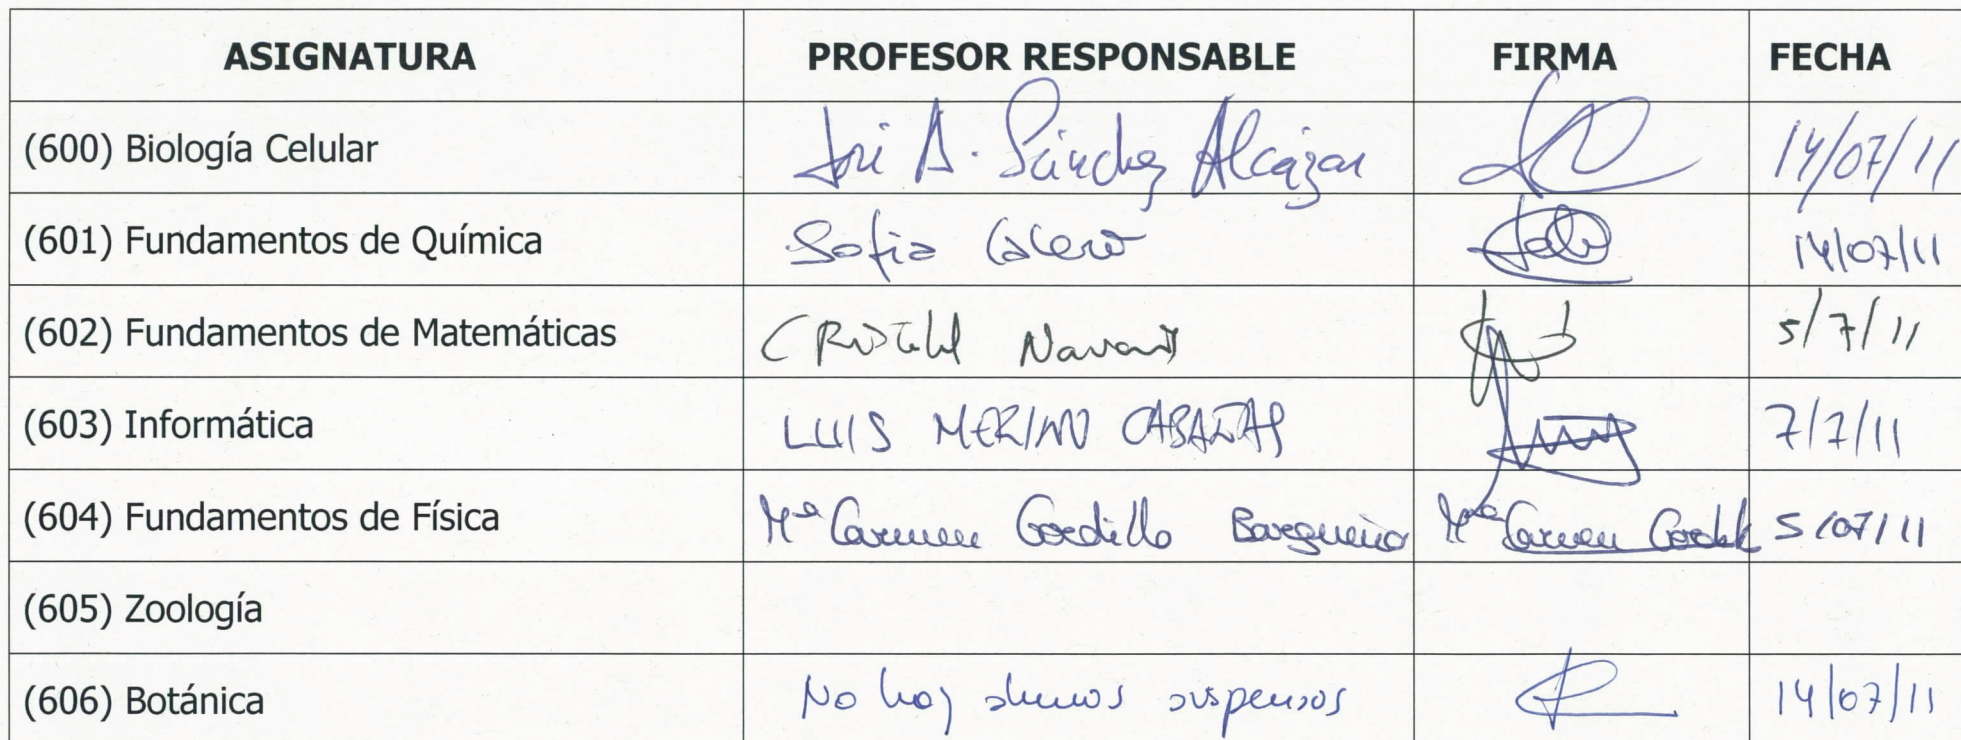 ASIGNATURA PROFESOR RESPONSABLE FIRMA FECHA
(600) Biología Celular José A. Sánchez Alcázar 14/07/11
(601) Fundamentos de Química Sofia Calero 14/07/11
(602) Fundamentos de Matemáticas Navarro 5/7/11
(603) Informática LUIS MERINO CABAÑAS 7/7/11
(604) Fundamentos de Física Mª Carmen Gordillo Bargueño Mª Carmen 5/07/11
(605) Zoología
(606) Botánica No hay alumnos suspensos 14/07/11